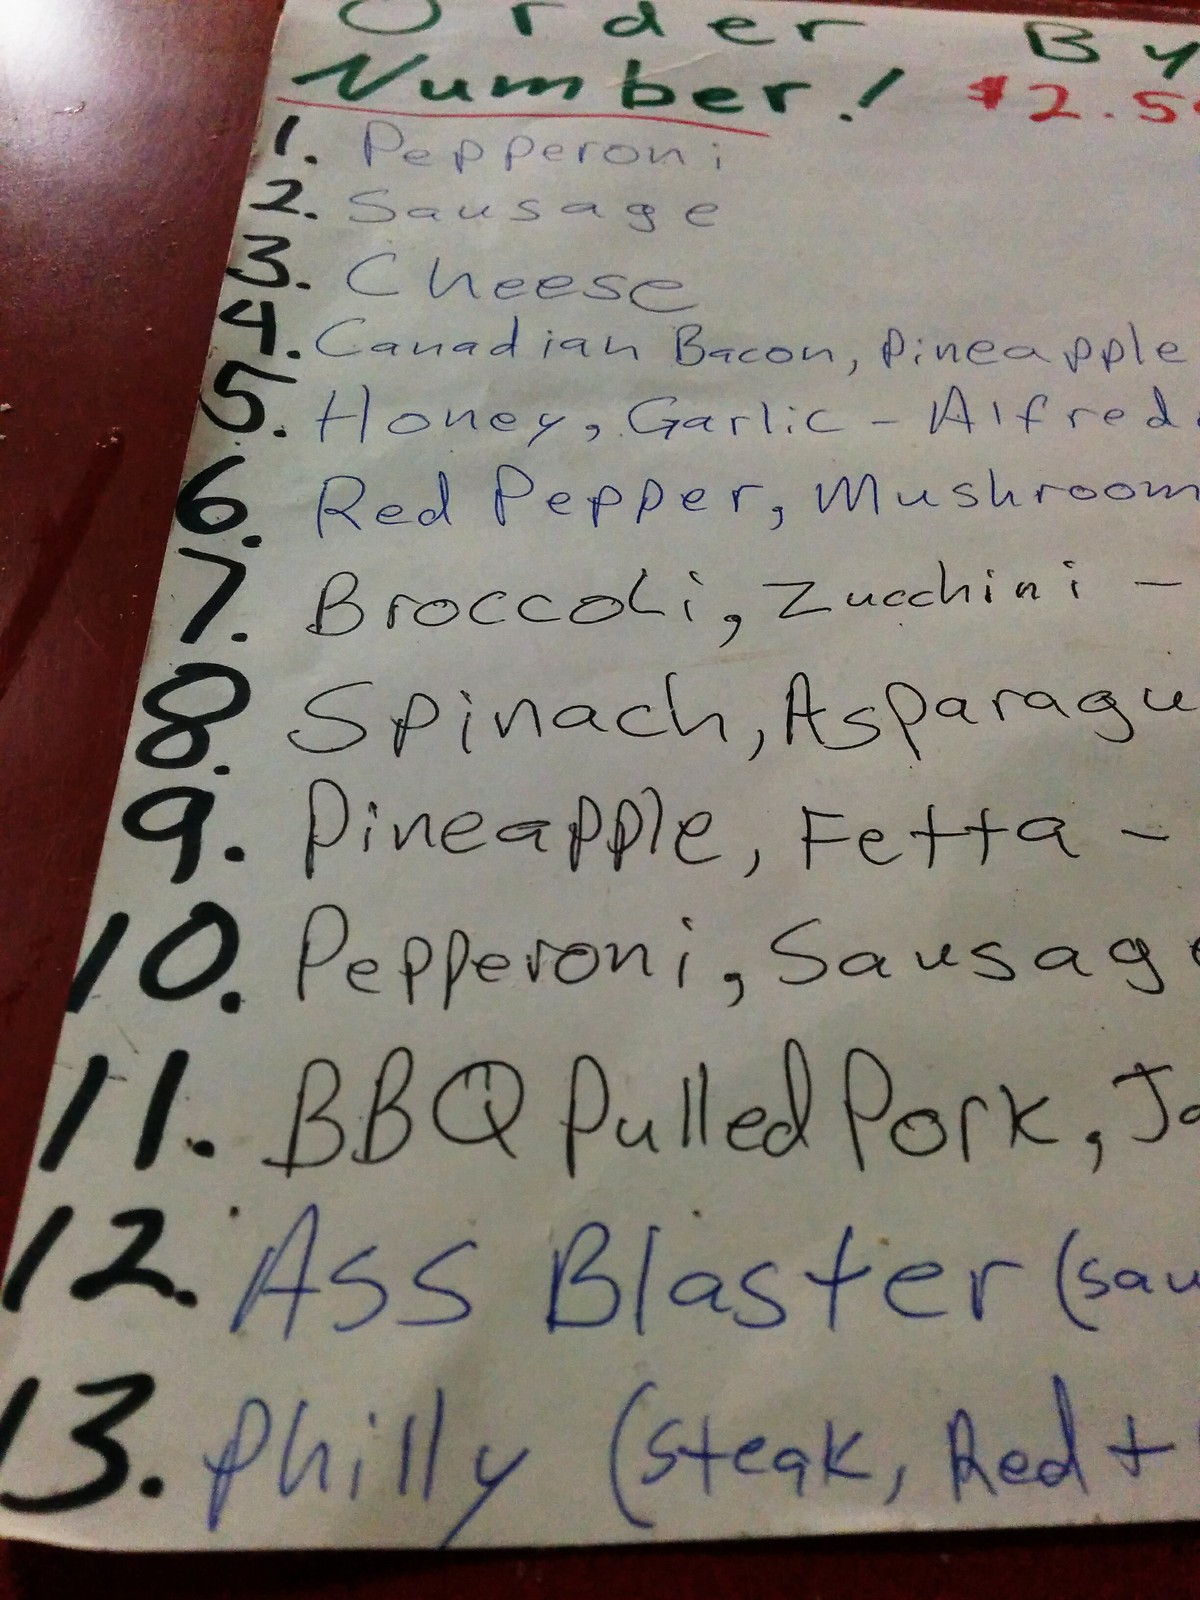 Order By
Number! $2.5
1. Pepperoni
2. Sausage
3. Cheese
4. Canadian Bacon, Pineapple
5. Honey, Garlic - Alfred
6. Red Pepper, Mushroom
7. Broccoli, Zucchini -
8. Spinach, Asparagu
9. Pineapple, Fetta -
10. Pepperoni, Sausage
11. BBQ Pulled Pork, Ja
12. Ass Blaster (sau
13. Philly (steak, Red +